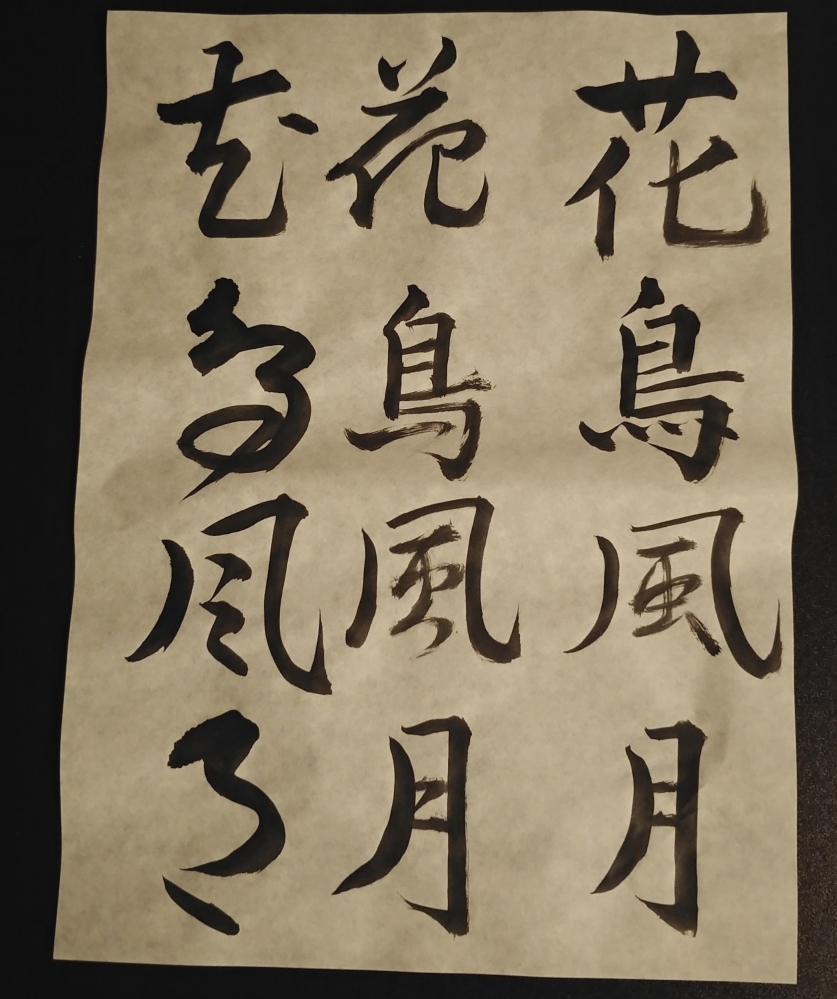 花鳥風月
花鳥風月
花鳥風月